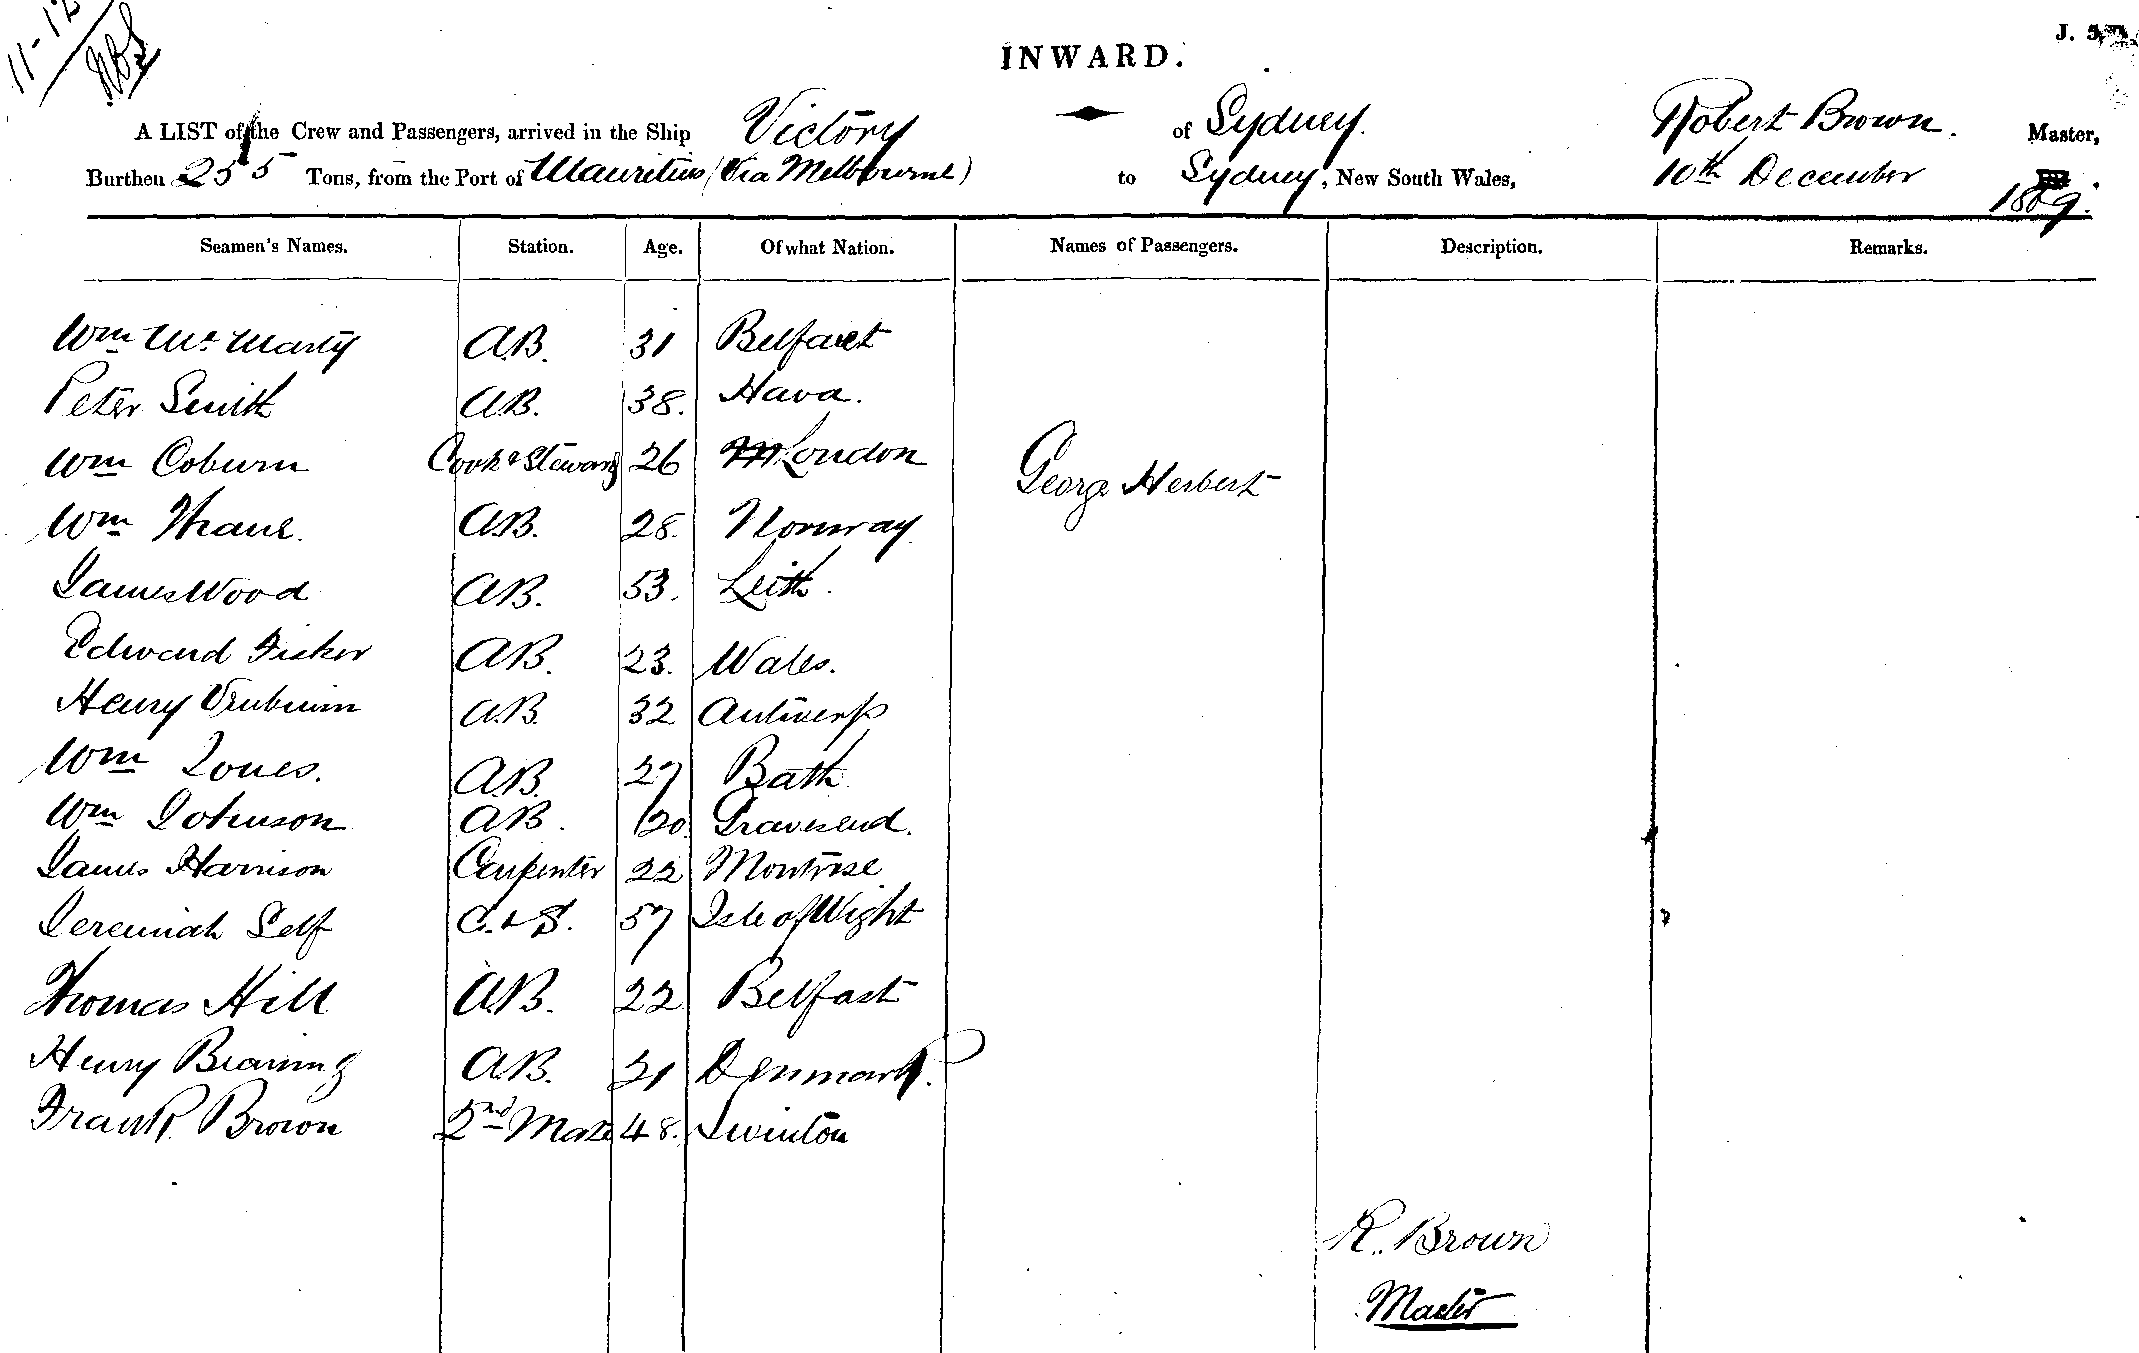 11-12
INWARD.
J.
A LIST of the Crew and Passengers, arrived in the Ship Victory of Sydney. Robert Brown. Master,
Burthen 255 Tons, from the Port of Mauritius (Via Melbourne) to Sydney, New South Wales, 10th December 1869.
Seamen's Names. Station. Age. Of what Nation. Names of Passengers. Description. Remarks.
Wm Mc A.B. 31 Belfast
Peter Smith A.B. 38. Hava.
Wm Coburn Cook & Steward 26 London
George Herbert
Wm A.B. 28. Norway
James Wood A.B. 53. Leith.
Edward A.B. 23. Wales.
Henry A.B. 32 Antwerp
Wm Jones. A.B. 27 Bath
Wm Johnson A.B. 20 Gravesend.
James Harrison Carpenter 22 Montrose
Jeremiah Self C. & S. 57 Isle of Wight
Thomas Hill A.B. 22 Belfast
Henry A.B. 21 Denmark.
Frank Brown 2nd Mate 48. Swinton
R. Brown
Master